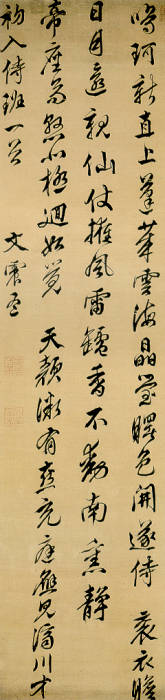 鳴珂新直上蓬萊雲海晶瑩曙色開遂侍袞衣瞻
日月遥親仙仗擁風雷鑪香不動南熏静
帝座高懸北極迴如覺天顏有喜充庭見濟川才
初入侍班一首 文震孟